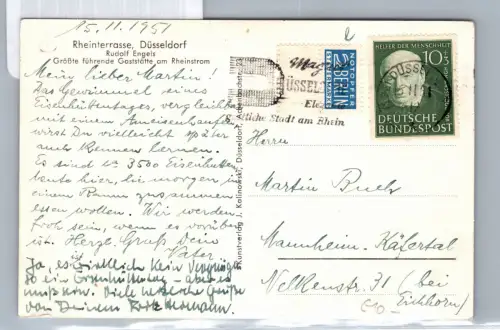 15.11.1951
Rheinterrasse, Düsseldorf
Rudolf Engels
Größte führende Gaststätte am Rheinstrom
Mein lieber Martin!
Das Gewimmel eines
Eisenhüttentages, vergleichbar
mit einem Ameisenhaufen
wirst Du vielleicht später
auch kennen lernen.
Es sind ca 3500 Eisenhütten-
leute hier, die morgen in
einem Raum zusammen
essen wollen. Wir werden
froh sein, wenn es vorüber
ist. Herzl. Gruß Dein
Vater
Ja, es ist wirklich kein Vergnügen
so ein Eisenhüttentag - aber es
muß sein. Viele herzliche Grüße
von Deinem
Kunstverlag J. Kalinowski, Düsseldorf
NOTOPFER
2 BERLIN
STEUERMARKE
DÜSSELDORF
Stadt am Rhein
HELFER DER MENSCHHEIT
10+3
DEUTSCHE
BUNDESPOST
Herrn
Martin Buch
Mannheim-Käfertal
Nelkenstr. 31 (bei
Eichhorn)